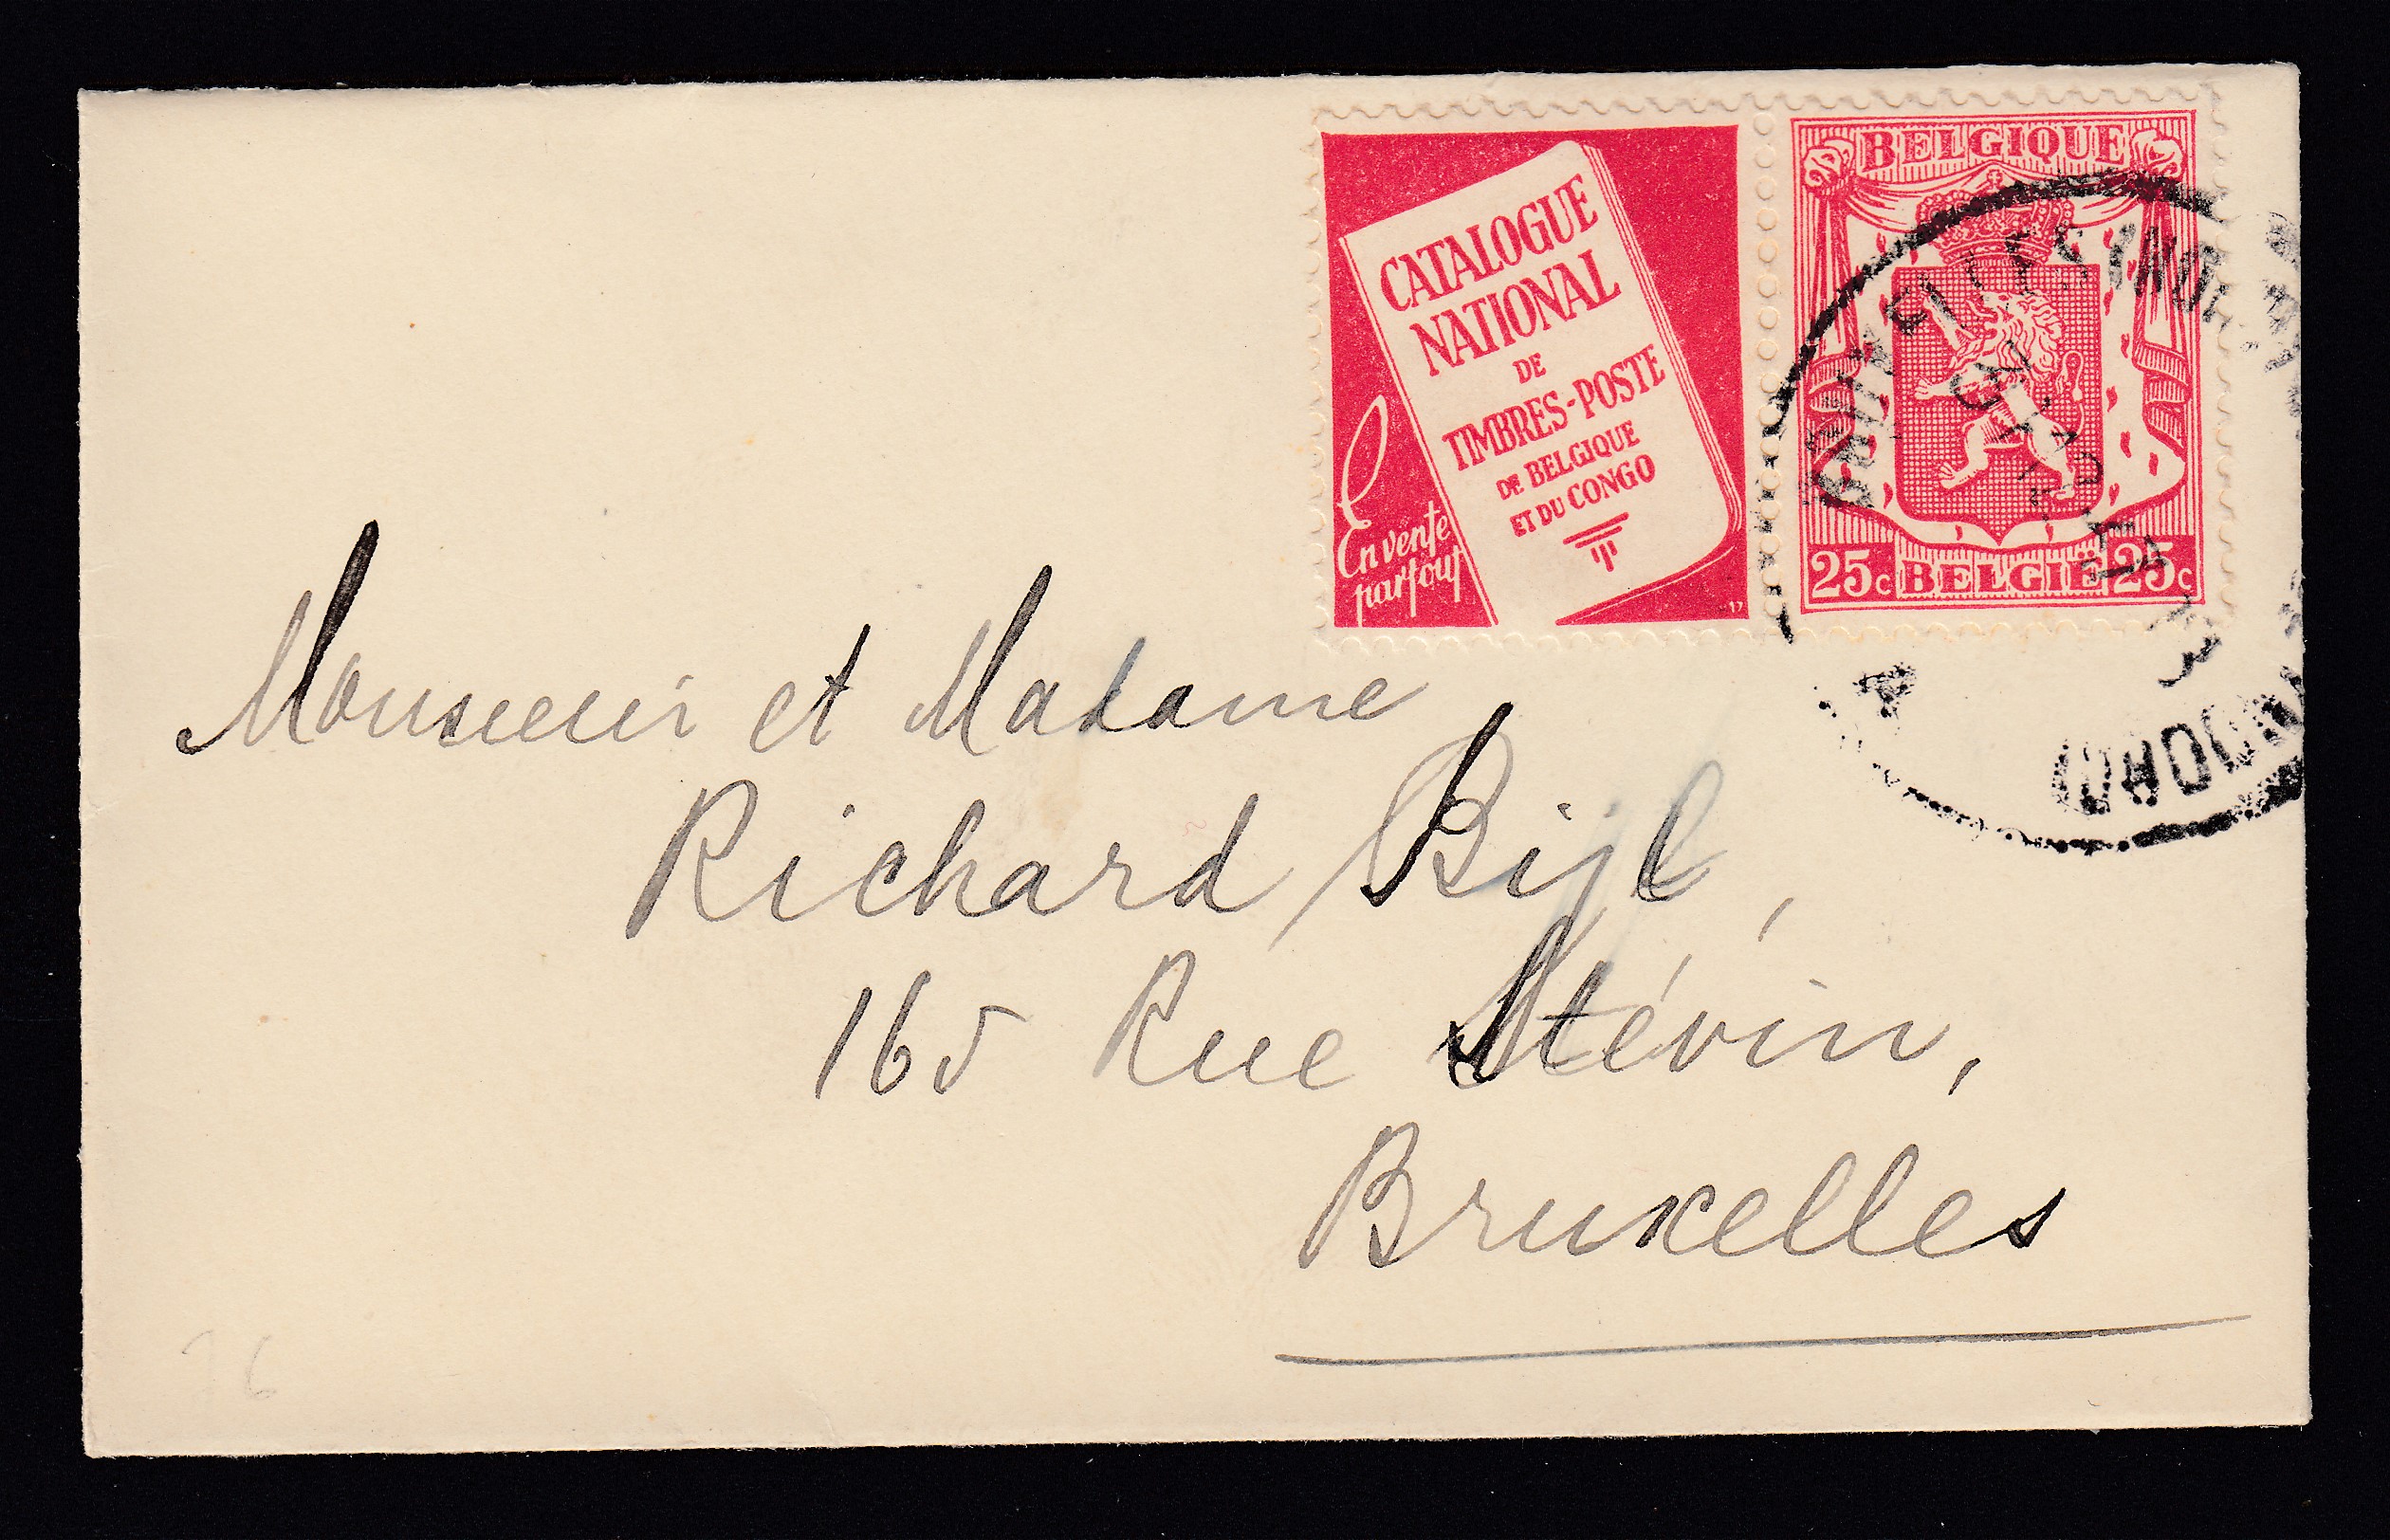 CATALOGUE
NATIONAL
DE
TIMBRES-POSTE
DE BELGIQUE
ET DU CONGO
En vente
partout
17
BELGIQUE
25c BELGIË 25c
Monsieur et Madame
Richard Bijl,
165 Rue Stévin,
Bruxelles